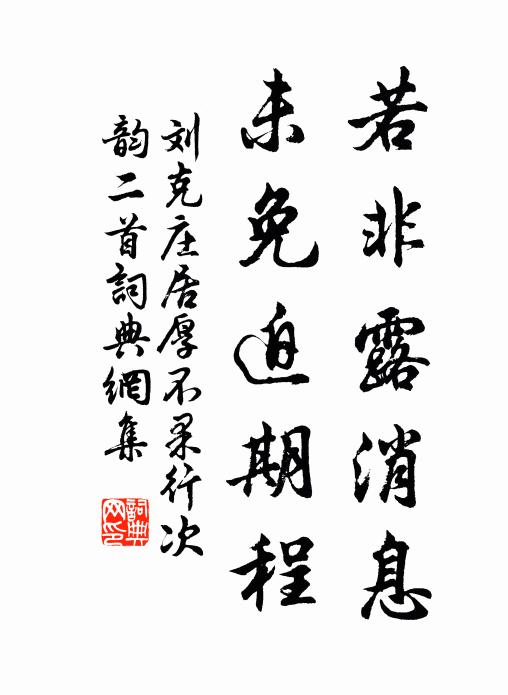 若非露消息
未免迫期程
刘克庄居厚不果行次
韵二首詞典網集
詞典网印